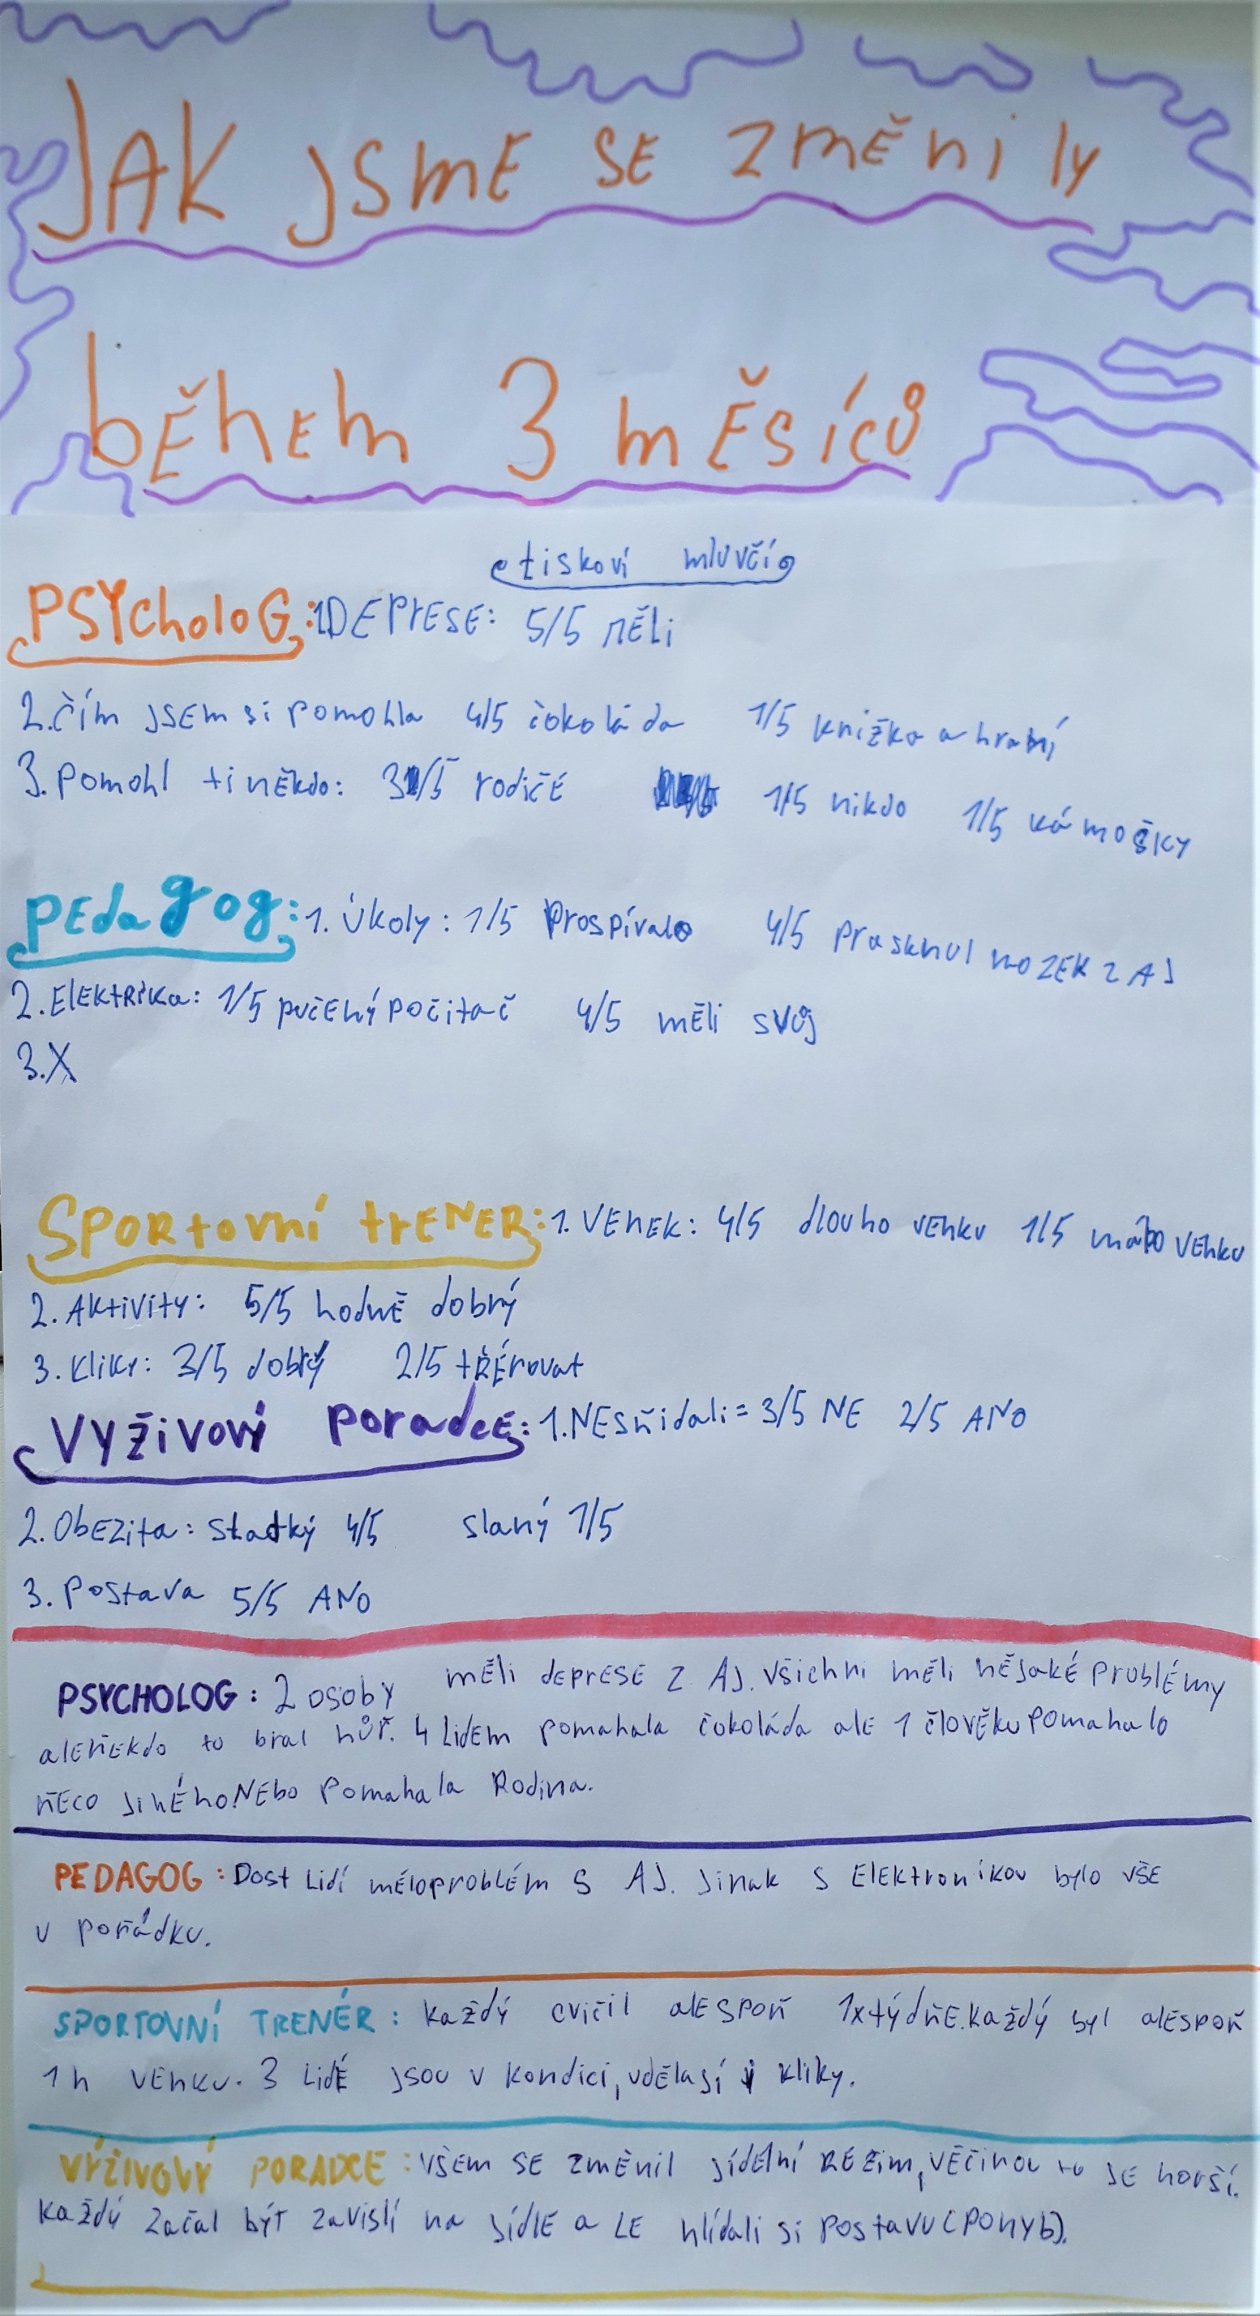 JAK JSME SE ZMĚNILY
BĚHEM 3 MĚSÍCŮ
tiskoví mluvčí
PSYCHOLOG: 1. DEPRESE: 5/5 MĚLI
2. čím JSEM si pomohla 4/5 čokoláda 1/5 knižka a hraní
3. Pomohl ti někdo: 3/5 rodičé 1/5 nikdo 1/5 kámošky
PEDAGOG: 1. Úkoly: 1/5 Prospívalo 4/5 Prasknul mozek z AJ
2. Elektrika: 1/5 pučený počitač 4/5 měli svůj
3. X
SPORTOVNÍ trENER: 1. VENEK: 4/5 dlouho venku 1/5 málo venku
2. Aktivity: 5/5 hodně dobrý
3. Kliky: 3/5 dobrý 2/5 třérovat
VYŽIVOVÝ PORADCE: 1. NESňidali = 3/5 NE 2/5 ANO
2. Obezita: sladký 4/5 slaný 1/5
3. Postava 5/5 ANO
PSYCHOLOG: 2 osoby měli deprese z AJ. všichni měli nějaké problémy
aleňekdo to bral hůř. 4 lidem pomahala čokoláda ale 1 člověku pomahalo
ňeco jiného. NEbo pomahala Rodina.
PEDAGOG: Dost lidí měloproblém s AJ. Jinak s Elektronikou bylo vše
v pořádku.
SPORTOVNÍ TRENÉR: Každý cvičil alespoň 1x týdňe. každý byl alespoň
1h venku. 3 lidé jsou v kondici, udělají kliky.
VÝŽIVOVÝ PORADCE: všem se změnil jídelní režim, věčinou to je horší.
Každý začal být zavislí na jídle a LE hlídali si postavu (POHYB).